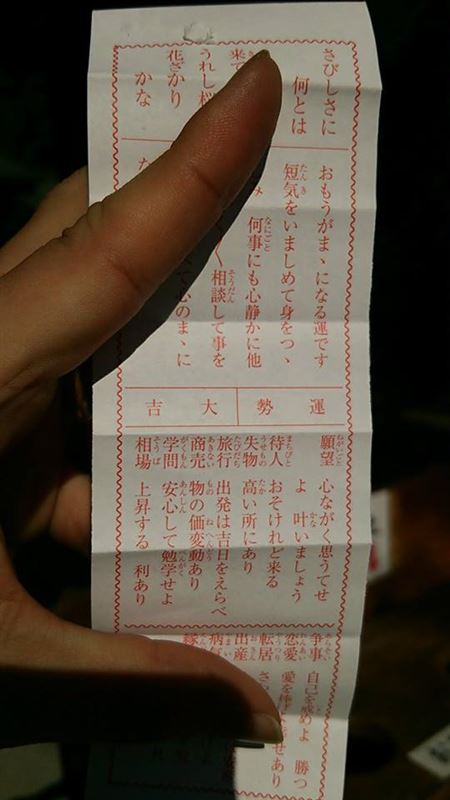 さびしさに
何とは
来て
うれし桜
花ざかり
かな
おもうがまゝになる運です
短気をいましめて身をつゝ
み 何事にも心静かに他
く相談して事を
て心のまゝに
な
運勢 大吉
願望 心ながく思うてせ
よ 叶いましょう
待人 おそけれど来る
失物 高い所にあり
旅行 出発は吉日をえらべ
商売 物の価変動あり
学問 安心して勉学せよ
相場 上昇する 利あり
争事 自己を めよ 勝つ
恋愛 愛を 幸せあり
転居 さ
出産
病気
縁